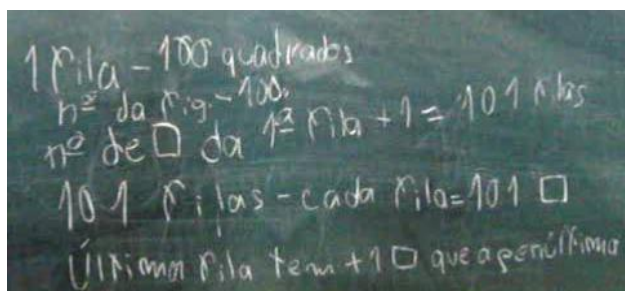 1 fila - 100 quadrados
nº da fig. - 100.
nº de □ da 1ª fila + 1 = 101 filas
101 filas - cada fila = 101 □
Última fila tem + 1 □ que a penúltima